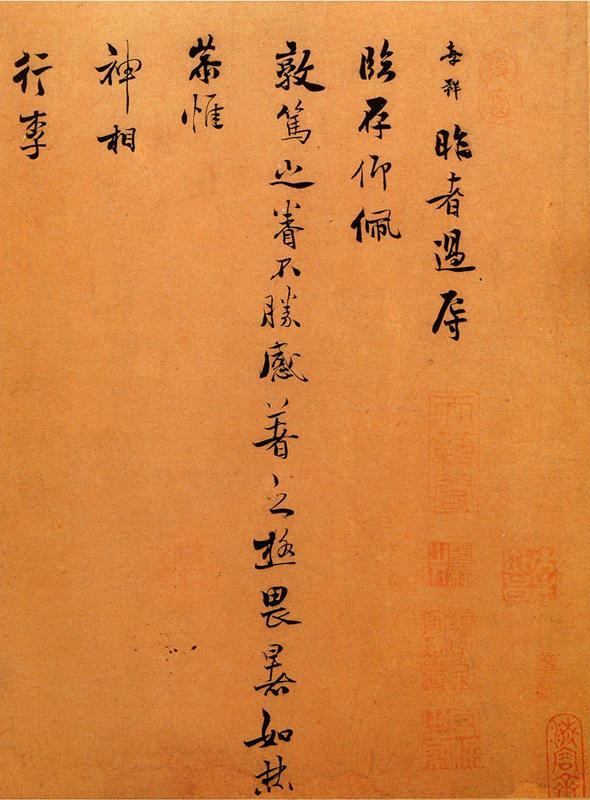 孝祥昨者過辱
臨存仰佩
敦篤之眷不勝感著之極畏暑如焚
恭惟
神相
行李